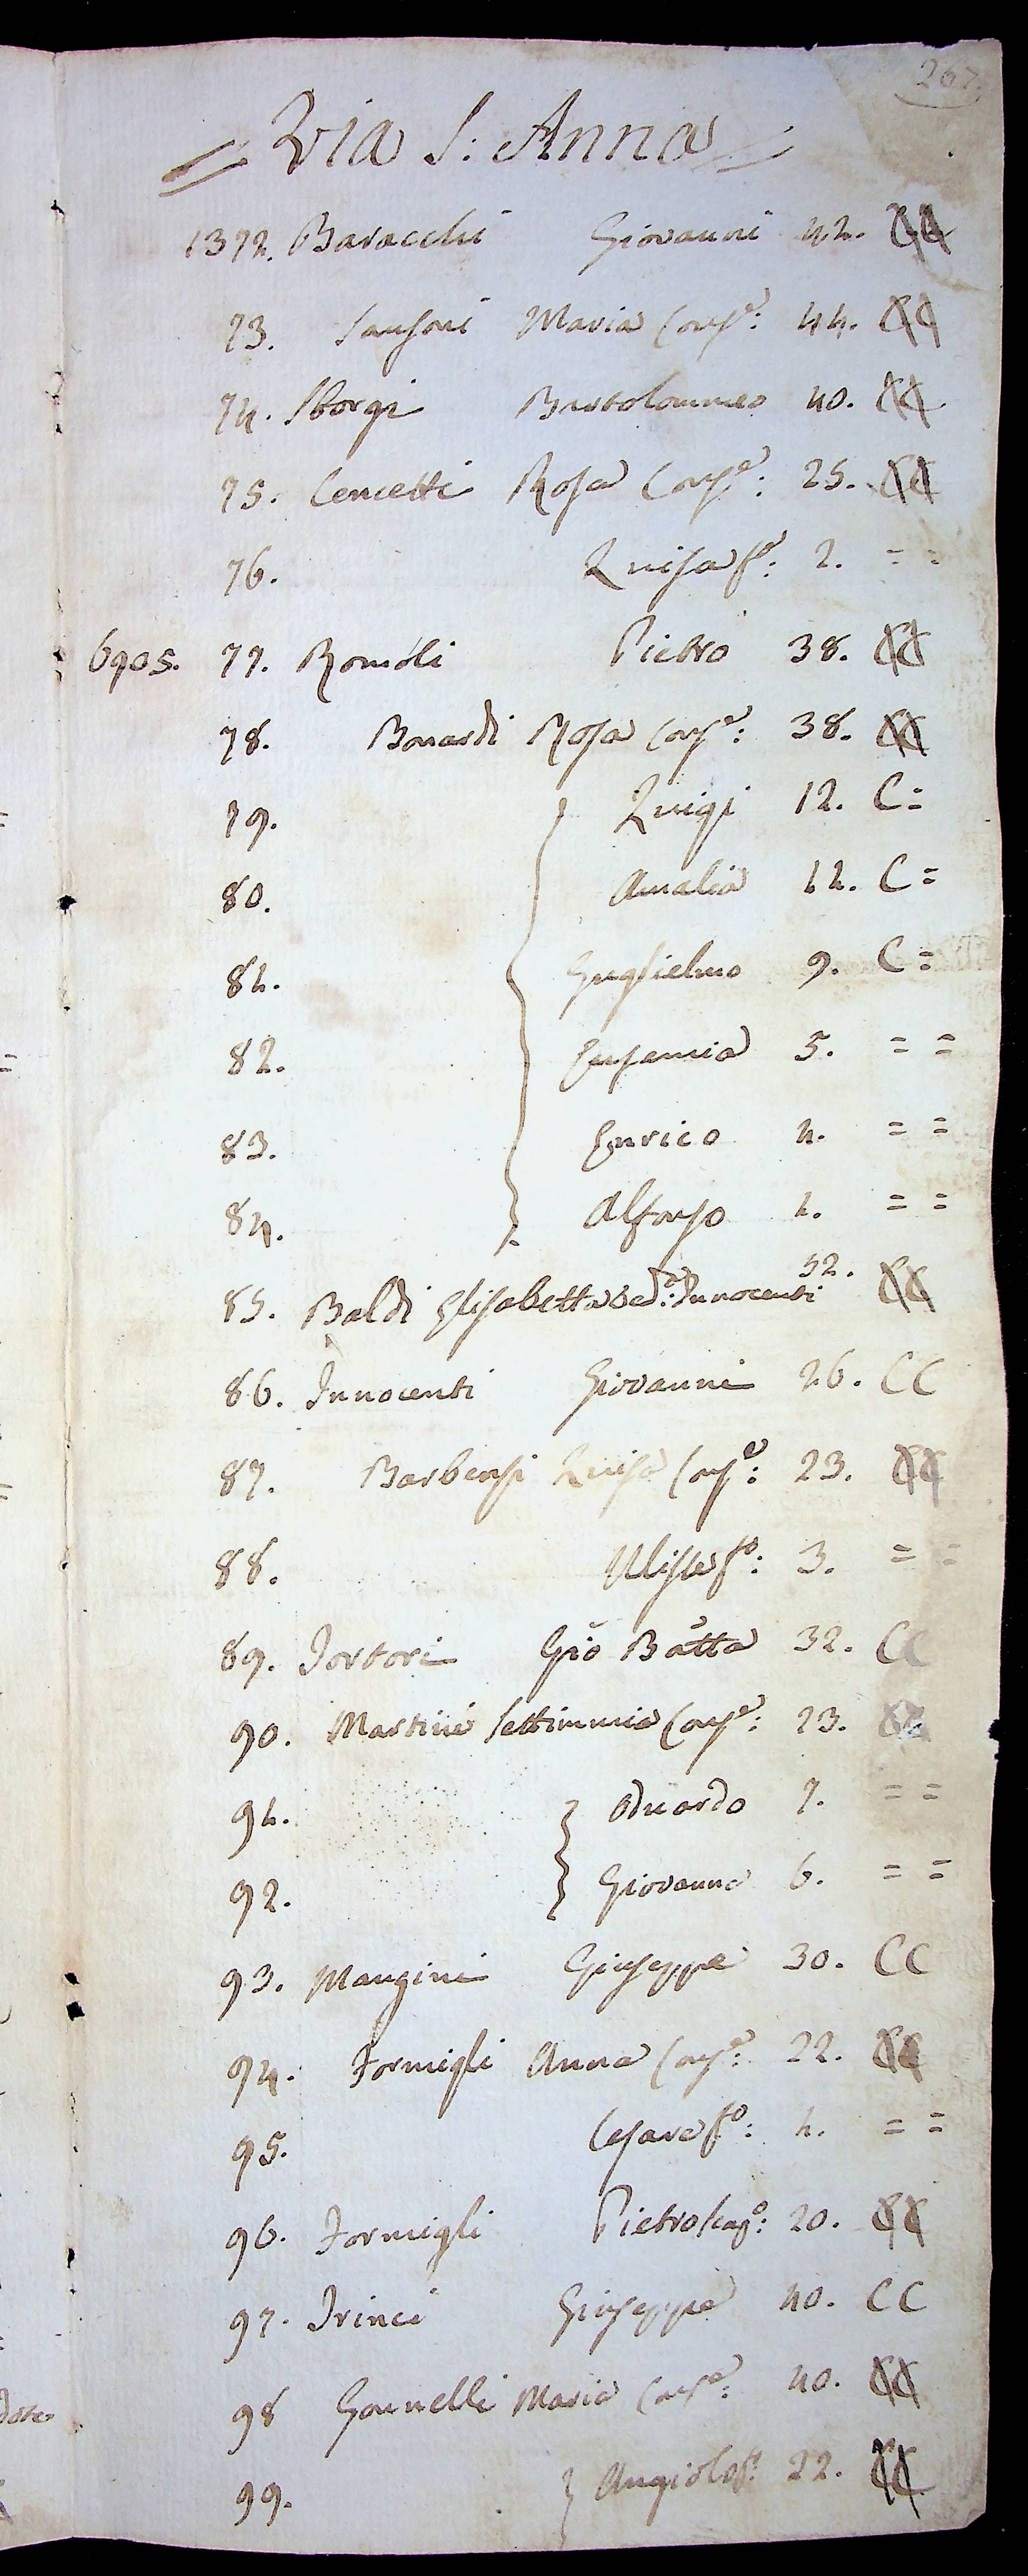 267.
= Via S: Anna =
1372. Baracchi Giovanni 42. CC
73. Sansoni Maria Cons.e: 44. CC
74. Sborgi Bartolommeo 40. CC
75. Cencetti Rosa Cons.e: 25. CC
76. Luisa f.a: 2. = =
6905. 77. Romoli Pietro 38. CC
78. Bonardi Rosa Cons.e: 38. CC
79. Luigi 12. C =
80. Amalia 11. C =
81. Guglielmo 9. C =
82. Eugenia 5. = =
83. Enrico 4. = =
84. Alfonso 1. = =
85. Baldi Elisabetta Ved.a: Innocenti 52. CC
86. Innocenti Giovanni 26. CC
87. Barbensi Luisa Cons.e: 23. CC
88. Ulisse f.o: 3. = =
89. Tortori Gio Batta 32. CC
90. Martini Settimmia Cons.e: 23. CC
91. Oduardo 7. = =
92. Giovanna 6. = =
93. Mangini Giuseppe 30. CC
94. Formigli Anna Cons.e: 22. CC
95. Cesare f.o: 1. = =
96. Formigli Pietro Cog.o: 20. CC
97. Trinci Giuseppe 40. CC
98 Gonnelli Maria Cons.e: 40. CC
99. Angiolo f.o: 22. CC